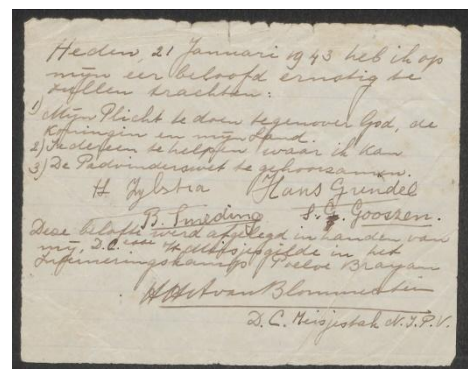 Heden, 21 Januari 1943 heb ik op
mijn eer beloofd ernstig te
zullen trachten:
1) Mijn Plicht te doen tegenover God, de
Koningin en mijn land.
2) Iedereen te helpen waar ik kan
3) De Padvinderswet te gehoorzamen.
H Zylstra Hans Grendel
B. Smeding S. G. Gooszen.
Deze belofte werd afgelegd in handen van
mij, D.C. Meisjesgilde in het
Interneringskamp Poeloe Brayan
van Blommestein
D.C. Meisjestak N.I.P.V.